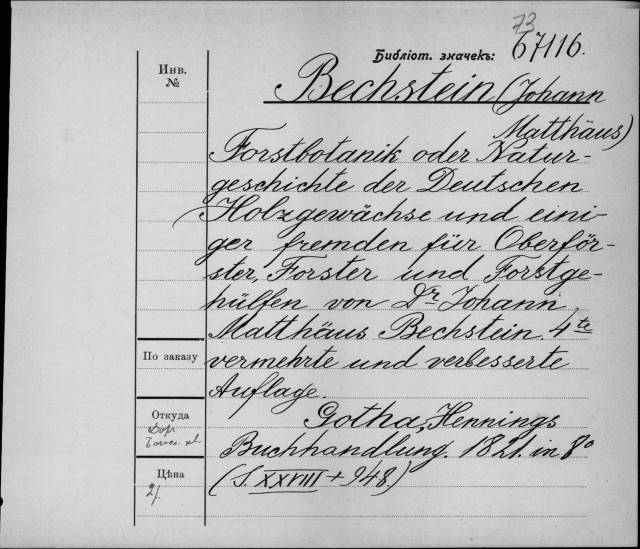 73
Библіот. значекъ: 67116.
Инв.
№
Bechstein (Johann
Matthäus)
Forstbotanik oder Natur-
geschichte der Deutschen
Holzgewächse und eini-
ger fremden für Oberför-
ster, Forster und Forstge-
hülfen von Dr Johann
Matthäus Bechstein. 4te
По заказу
vermehrte und verbesserte
Auflage.
Откуда
Gotha, Hennings
Buchhandlung. 1821. in 8o
Цѣна
2/.
(S. XXVIII + 948.)